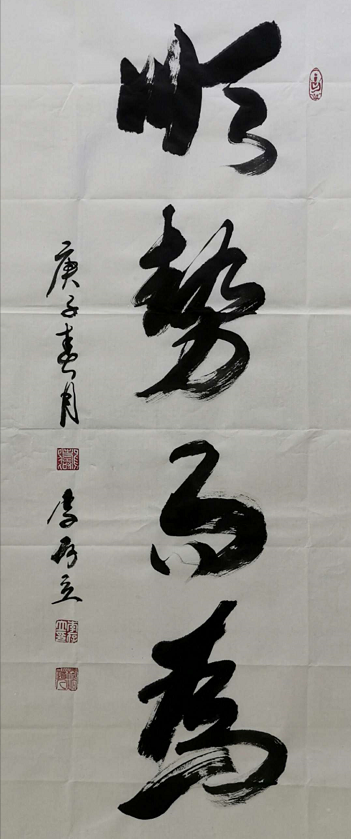 順勢而為
庚子春月
李
立